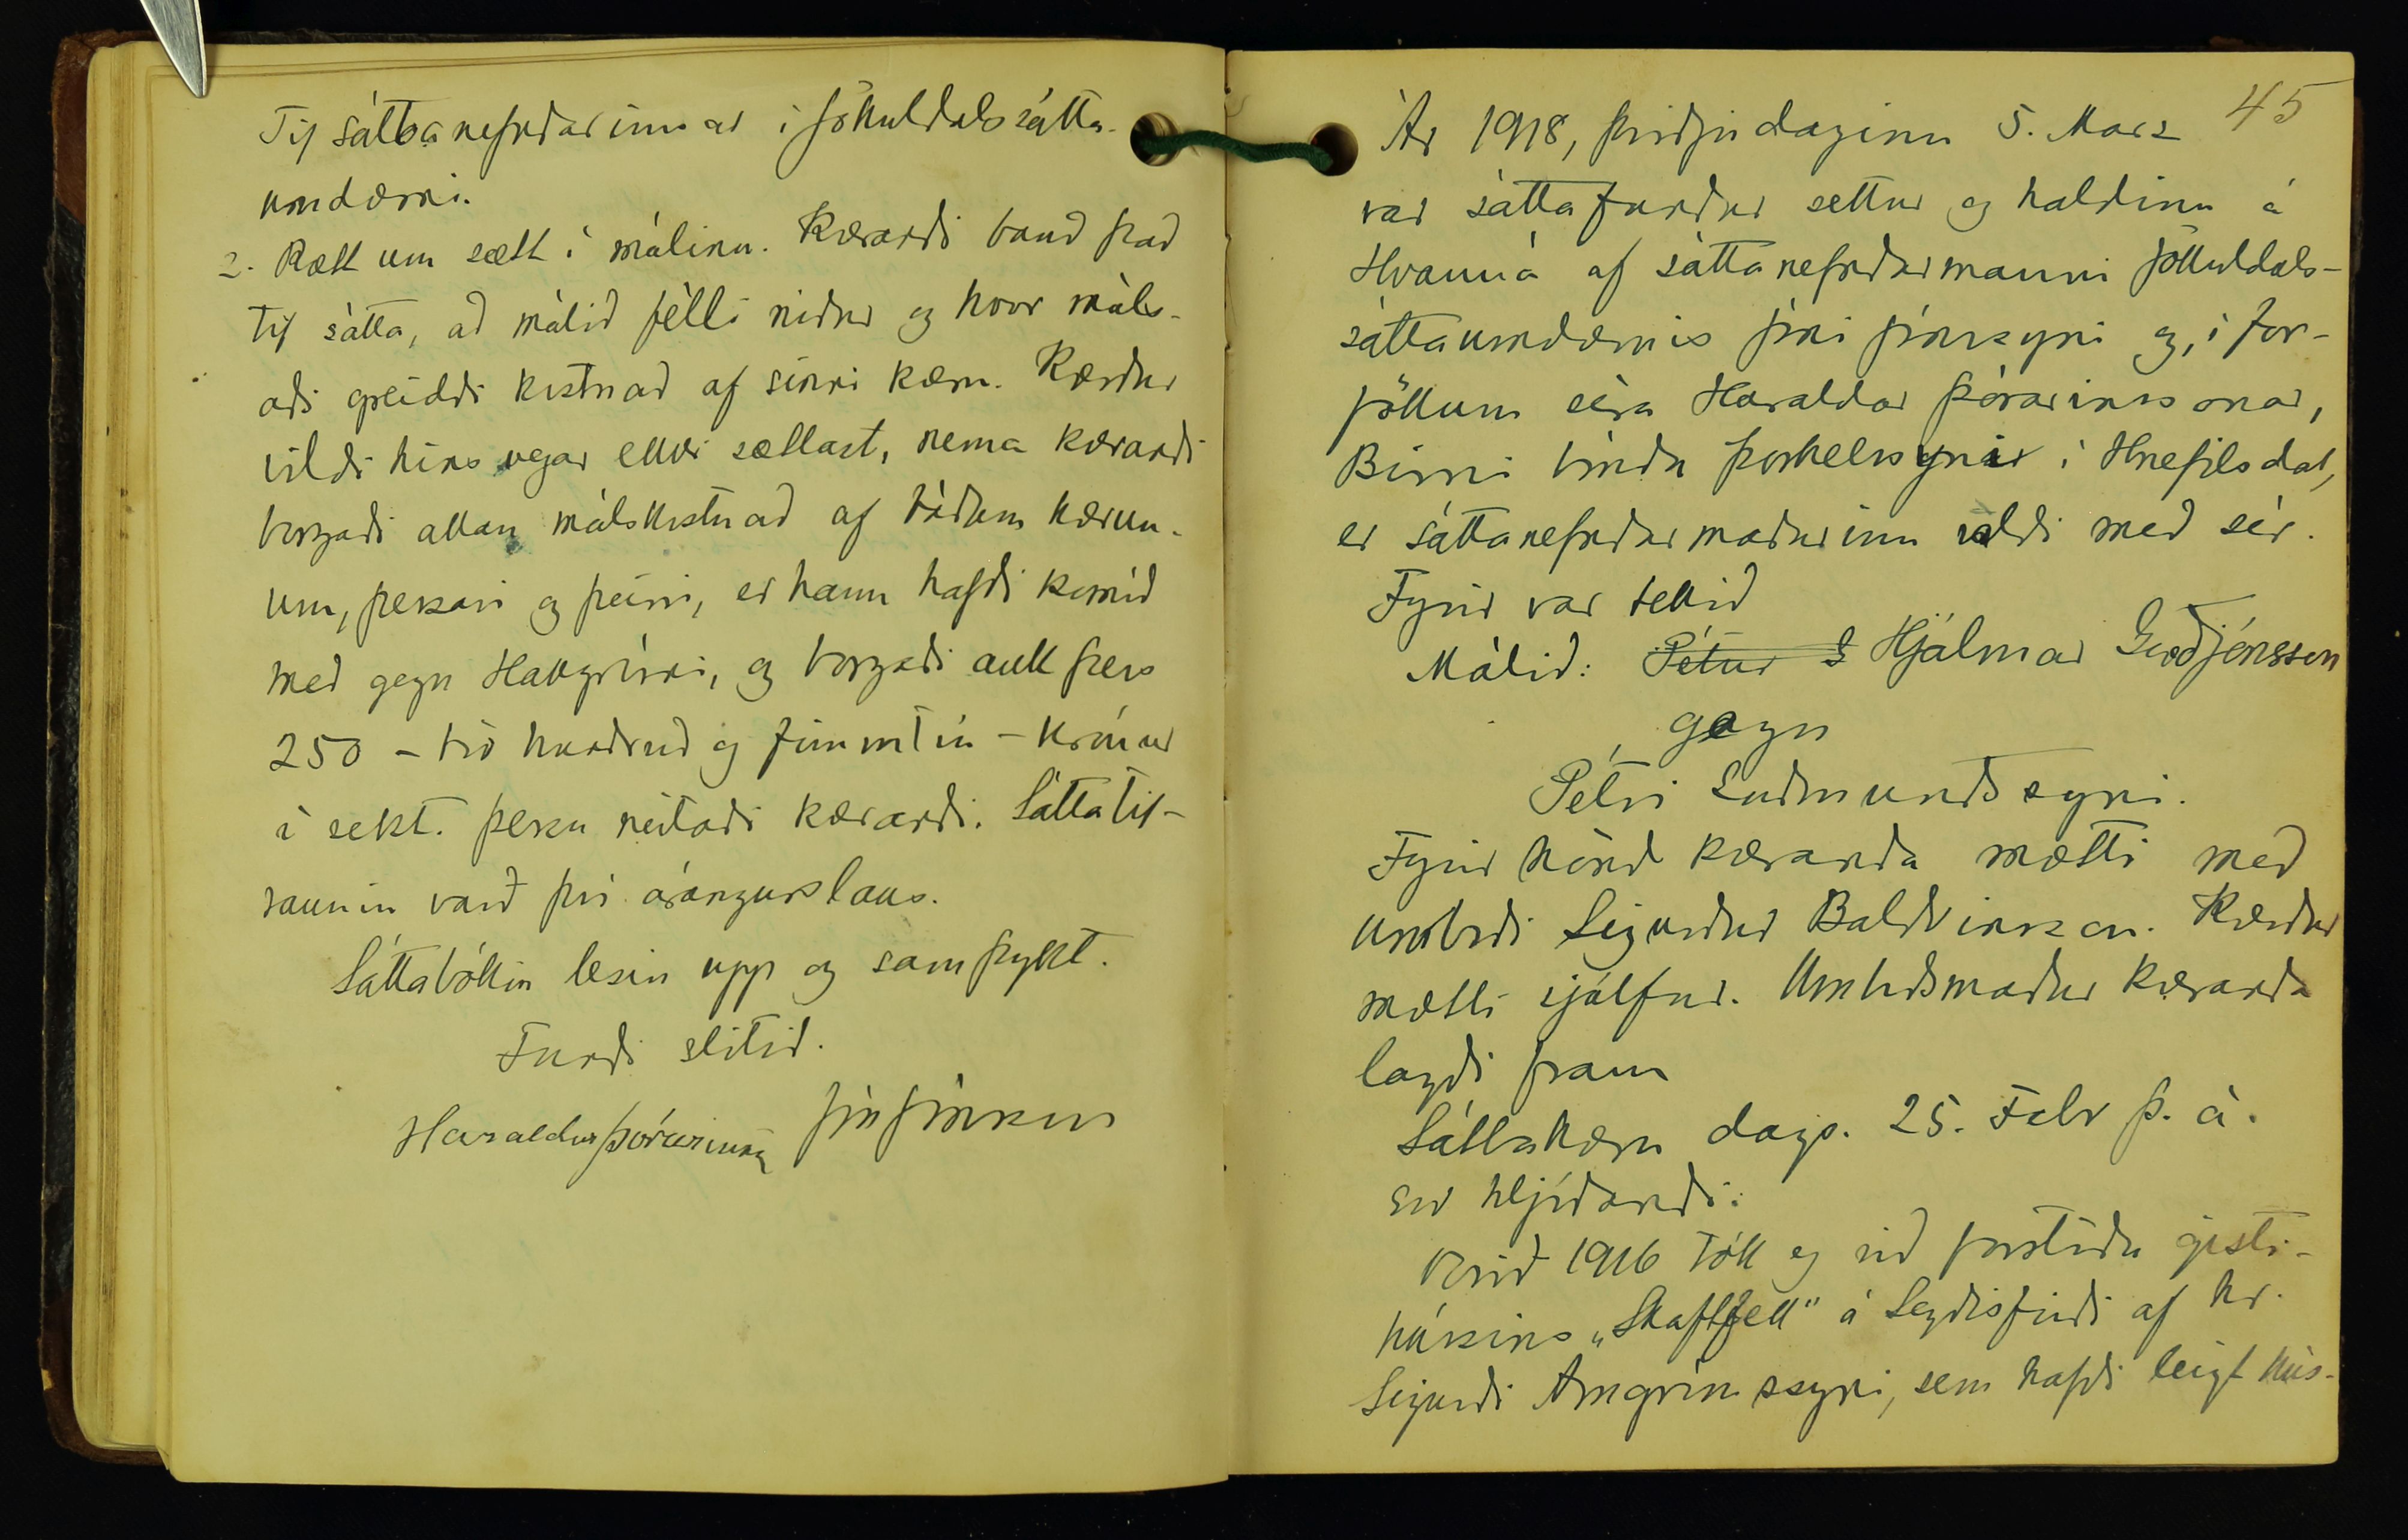 Til sáttanefndarinnar í Jökuldalssátta-
umdæmi.
2. Rætt um sætt í málinu. Kærandi bauð það
til sátta, að málið félli niður og hvor máls-
aði greiddi kostnað af sinni kæru. Kærður
vildi hins vegar ekki sættast, nema kærandi
borgaði allan málskostnað af báðum kærun-
um, þessari og þeirri, er hann hafði komið
með gegn Hallgrími, og borgaði auk þess
250 – tvö hundruð og fimmtíu – krónur
í sekt. Þessu neitaði kærandi. Sáttatil-
raunin varð því árangurslaus.
Sáttabókin lesin upp og samþykt.
Fundi slitið.
Haraldur Þórarinss. Jón Jónsson
45
Ár 1918, þriðjudaginn 5. Mars
var sáttafundur settur og haldinn á
Hvanná af sáttanefndarmanni Jökuldals-
sáttaumdæmis Jóni Jónssyni og, í for-
föllum séra Haraldar Þórarinssonar,
Birni bónda Þorkelssyni í Hnefilsdal,
er sáttanefndarmaðurinn valdi með sér.
Fyrir var tekið
Málið: Pétur G Hjálmar Guðjónsson
gegn
Pétri Guðmundssyni.
Fyrir hönd kæranda mætti með
umboði Sigurður Baldvinsson. Kærður
mætti sjálfur. Umboðsmaður kæranda
lagði fram
Sáttakæru dags. 25. Febr þ. á.
svo hljóðandi:
Vorið 1916 tók eg við forstöðu gisti-
hússins „Skaftfell" á Seyðisfirði af hr.
Sigurði Arngrímssyni, sem hafði leigt hús-